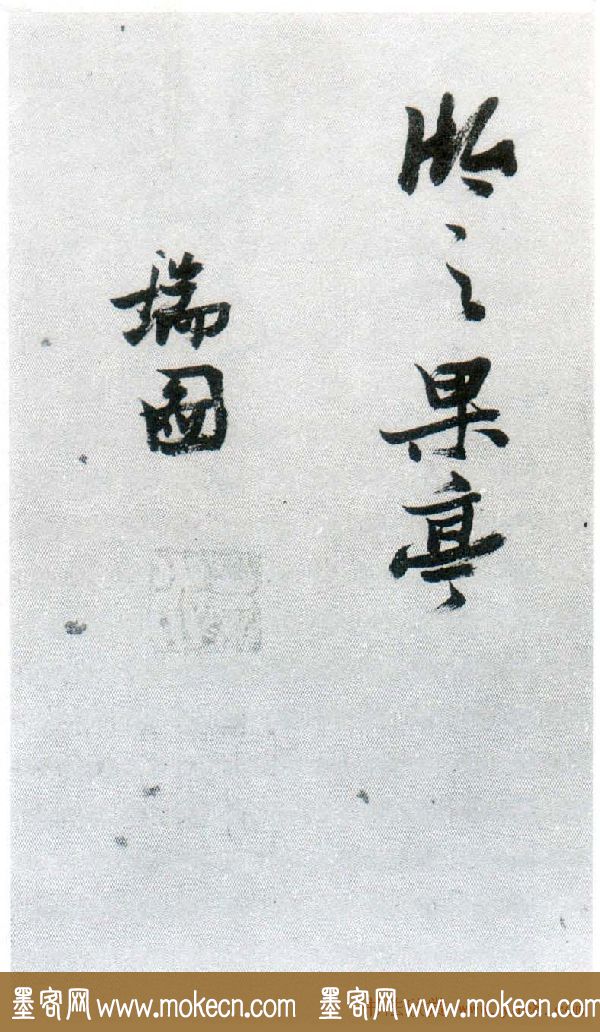 於之果亭
瑞圖
墨客网www.mokecn.com 墨客网www.mokecn.com